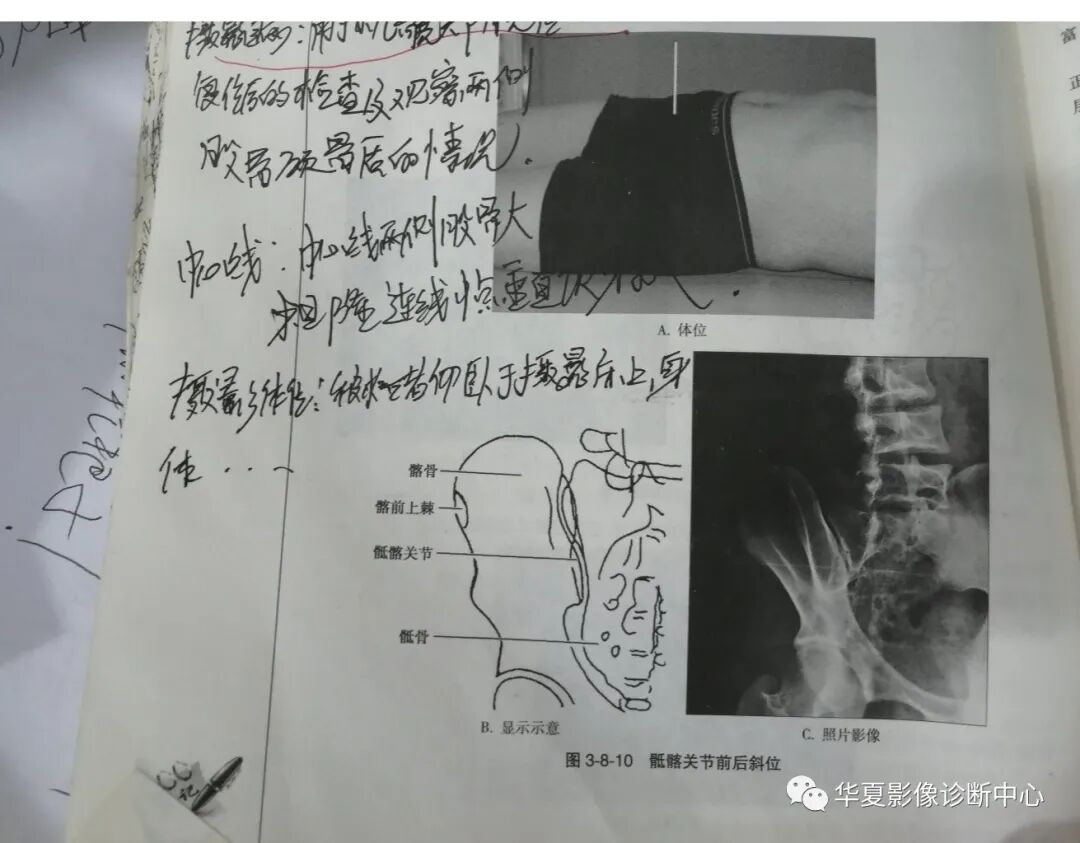 复位后的检查及观察两侧
股骨颈骨后的情况.
中心线:中心线两侧股骨大
粗隆连线中点垂直
A. 体位
摄影体位:被检者仰卧于摄影床上,身
体...
髂骨
髂前上棘
骶髂关节
骶骨
B. 显示示意
C. 照片影像
图 3-8-10 骶髂关节前后斜位
CC
记
华夏影像诊断中心
富
正